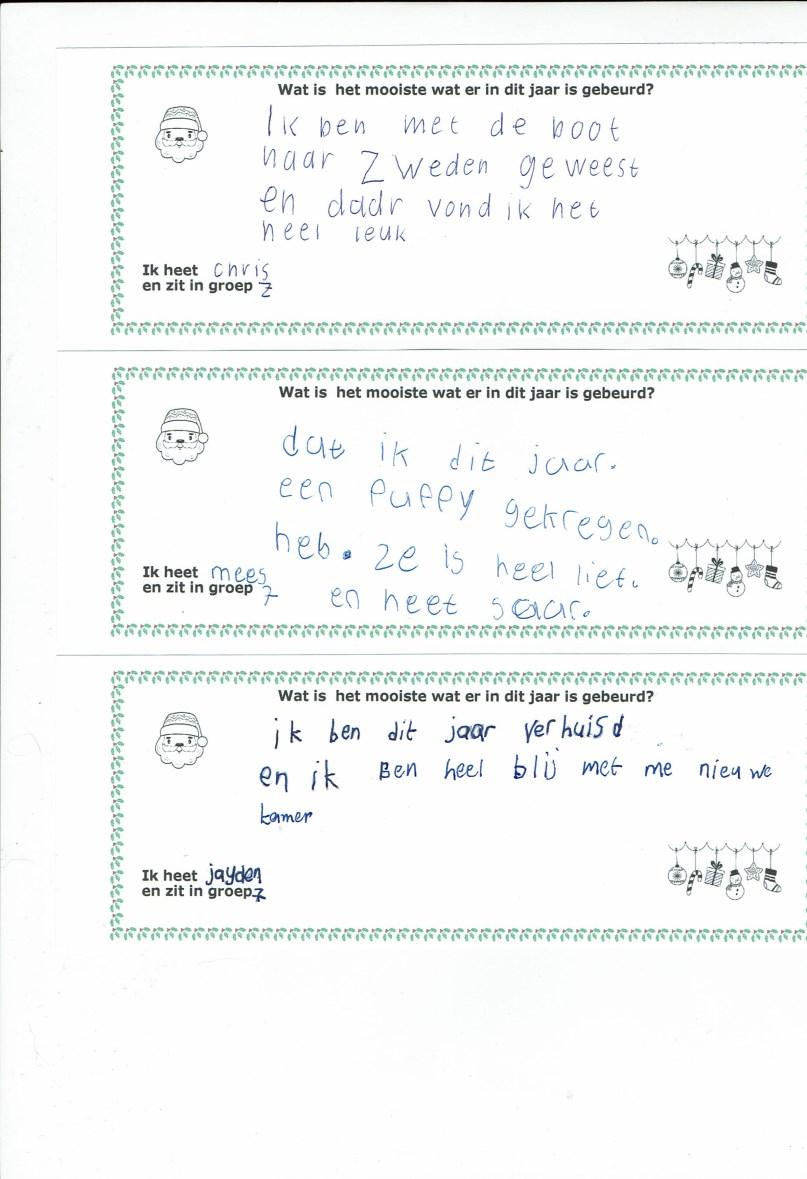 Wat is het mooiste wat er in dit jaar is gebeurd?
Ik ben met de boot
naar Zweden geweest
en daar vond ik het
heel leuk
Ik heet chris
en zit in groep 7
Wat is het mooiste wat er in dit jaar is gebeurd?
dat ik dit jaar.
een Puppy gekregen.
heb. ze is heel lief.
en heet saar.
Ik heet mees
en zit in groep 7
Wat is het mooiste wat er in dit jaar is gebeurd?
ik ben dit jaar verhuisd
en ik Ben heel blij met me nieuwe
kamer
Ik heet jayden
en zit in groep 7